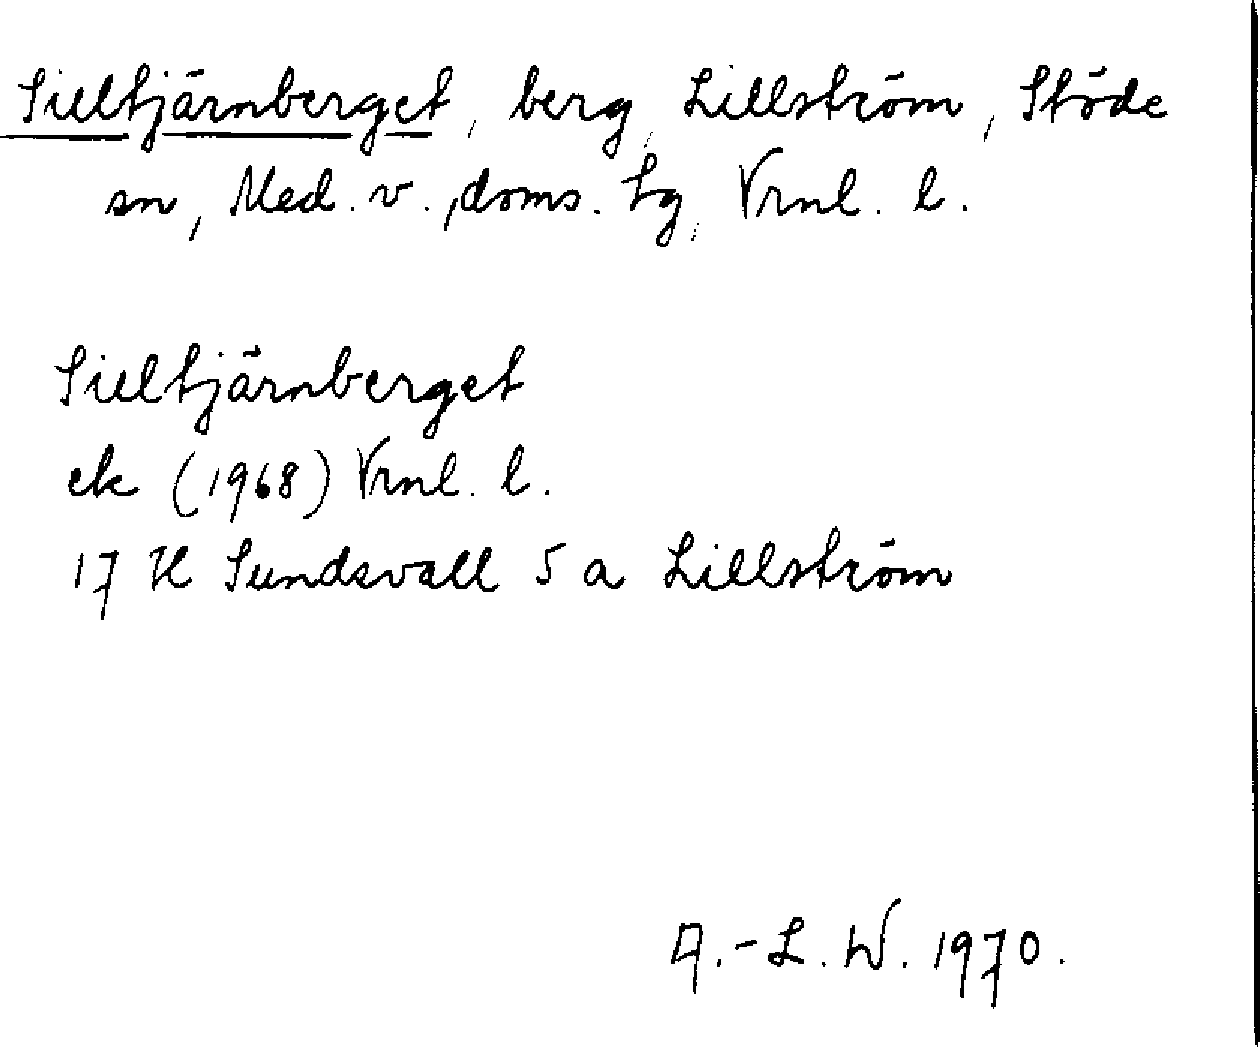 Silltjärnberget, berg, Lillström, Stöde
sn, Med. v., doms. tg, Vrnl. l.
Silltjärnberget
ek (1968) Vrnl. l.
17 H Sundsvall 5 a Lillström
A.-L. W. 1970.